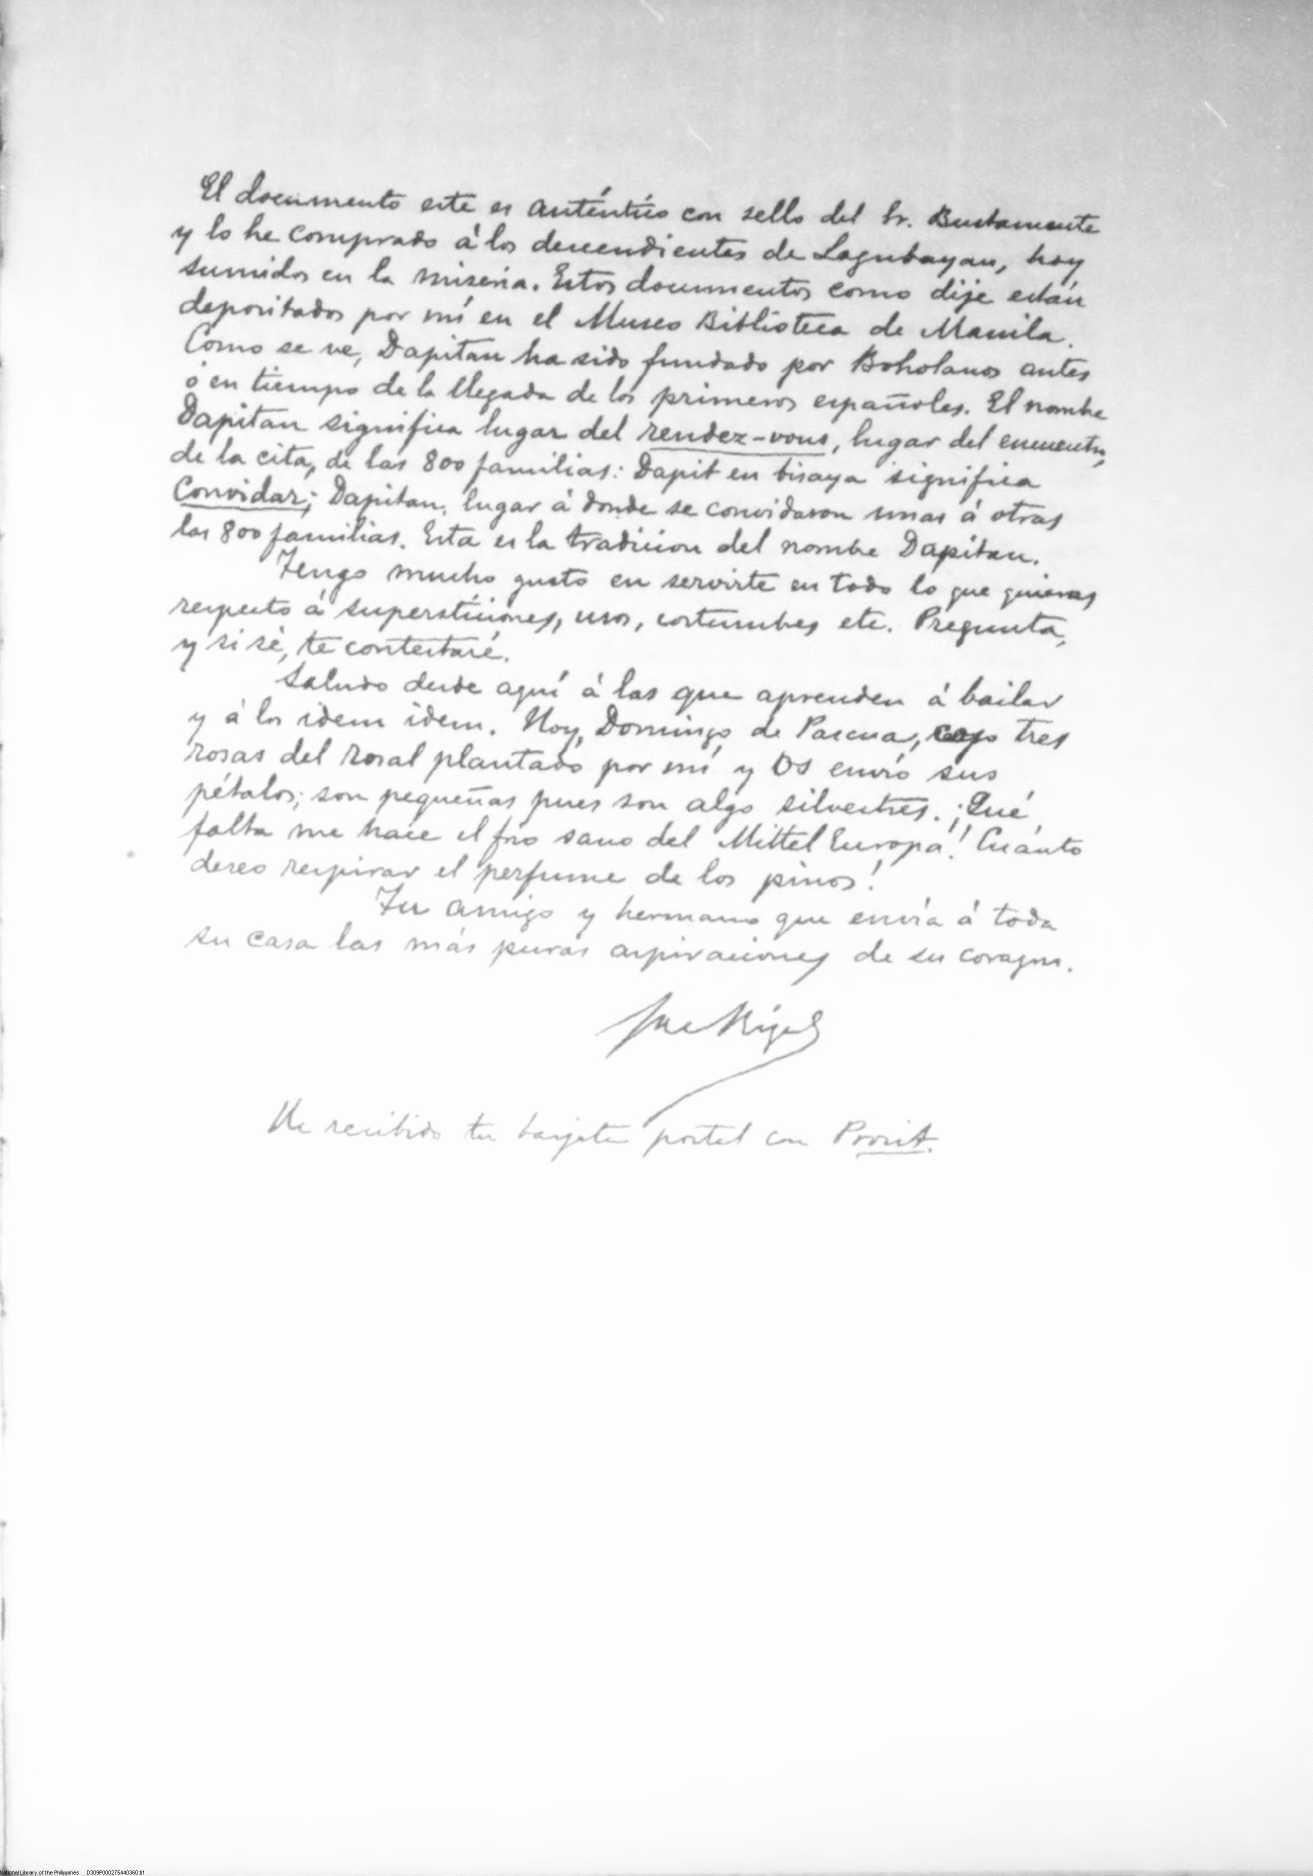 El documento este es auténtico con sello del Sr. Bustamente
y lo he comprado á los descendientes de Lagubayan, hoy
sumidos en la miseria. Estos documentos como dije están
depositados por mí en el Museo Biblioteca de Manila.
Como se ve, Dapitan ha sido fundado por Boholanos antes
ó en tiempo de la llegada de los primeros españoles. El nombre
Dapitan significa lugar del rendez-vous, lugar del encuentro,
de la cita, de las 800 familias: Dapit en bisaya significa
Convidar; Dapitan, lugar á donde se convidaron unas á otras
las 800 familias. Esta es la tradicion del nombre Dapitan.
Tengo mucho gusto en servirte en todo lo que quieras
respecto á supersticiones, usos, costumbres etc. Pregunta,
y si sé, te contestaré.
Saludo desde aquí á las que aprenden á bailar
y á los idem idem. Hoy, Domingo de Pascua, cojo tres
rosas del rosal plantado por mí y os envío sus
pétalos; son pequeñas pues son algo silvestres. ¡Qué
falta me hace el frío sano del Mittel Europa! ¡Cuánto
deseo respirar el perfume de los pinos!
Tu amigo y hermano que envía á toda
su casa las más puras aspiraciones de su corazon.
José Rizal
He recibido tu tarjeta postal con Prosit.
National Library of the Philippines